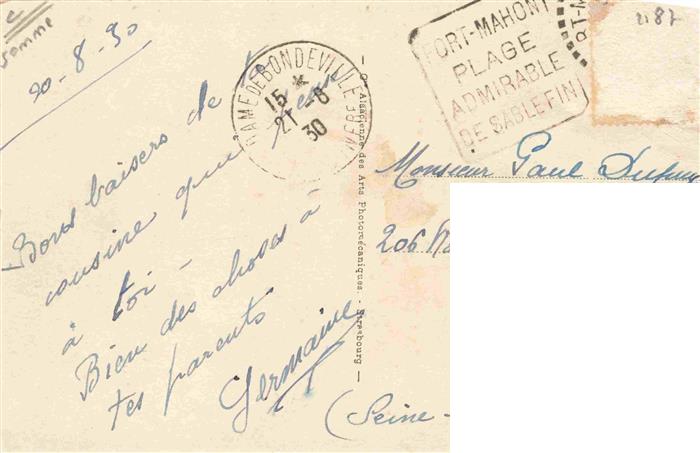 Somme
20-8-30
Bons baisers de ta
cousine qui pense
à toi -
Bien des choses à
tes parents
Germaine
DAME DE BONDEVILLE
15 *
21 -8
30
Alsacienne des Arts Photomécaniques. - Strasbourg
FORT-MAHON
PLAGE
ADMIRABLE
DE SABLE FIN
2187
Monsieur Paul
206
(Seine-